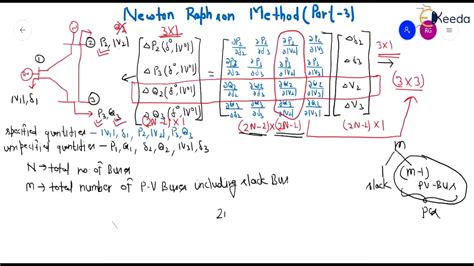 Newton Raphson Method (Part-3)
Keeda
RG
3x1
P2, |V2|
ΔP2(δ°,|V°|)
ΔP3(δ°,|V°|)
ΔQ2(δ°,|V°|)
ΔQ3(δ°,|V°|)
=
∂P2/∂δ2 ∂P2/∂δ3 ∂P2/∂|V2| ∂P2/∂|V3|
∂P3/∂δ2 ∂P3/∂δ3 ∂P3/∂|V2| ∂P3/∂|V3|
∂Q2/∂δ2 ∂Q2/∂δ3 ∂Q2/∂|V2| ∂Q2/∂|V3|
∂Q3/∂δ2 ∂Q3/∂δ3 ∂Q3/∂|V2| ∂Q3/∂|V3|
Δδ2
Δδ3
ΔV2
ΔV3
3x1
(3x3)
|V1|, δ1
P3, Q3
(2N-2)x1
(2N-2)x(2N-2)
(2N-2)x1
specified quantities - |V1|, δ1, P2, |V2|, P3, Q3
unspecified quantities - P1, Q1, δ2, Q2, |V3|, δ3
N → total no of Buses
m → total number of P-V Buses including slack Bus
m
slack
(m-1)
PV-BUS
2(